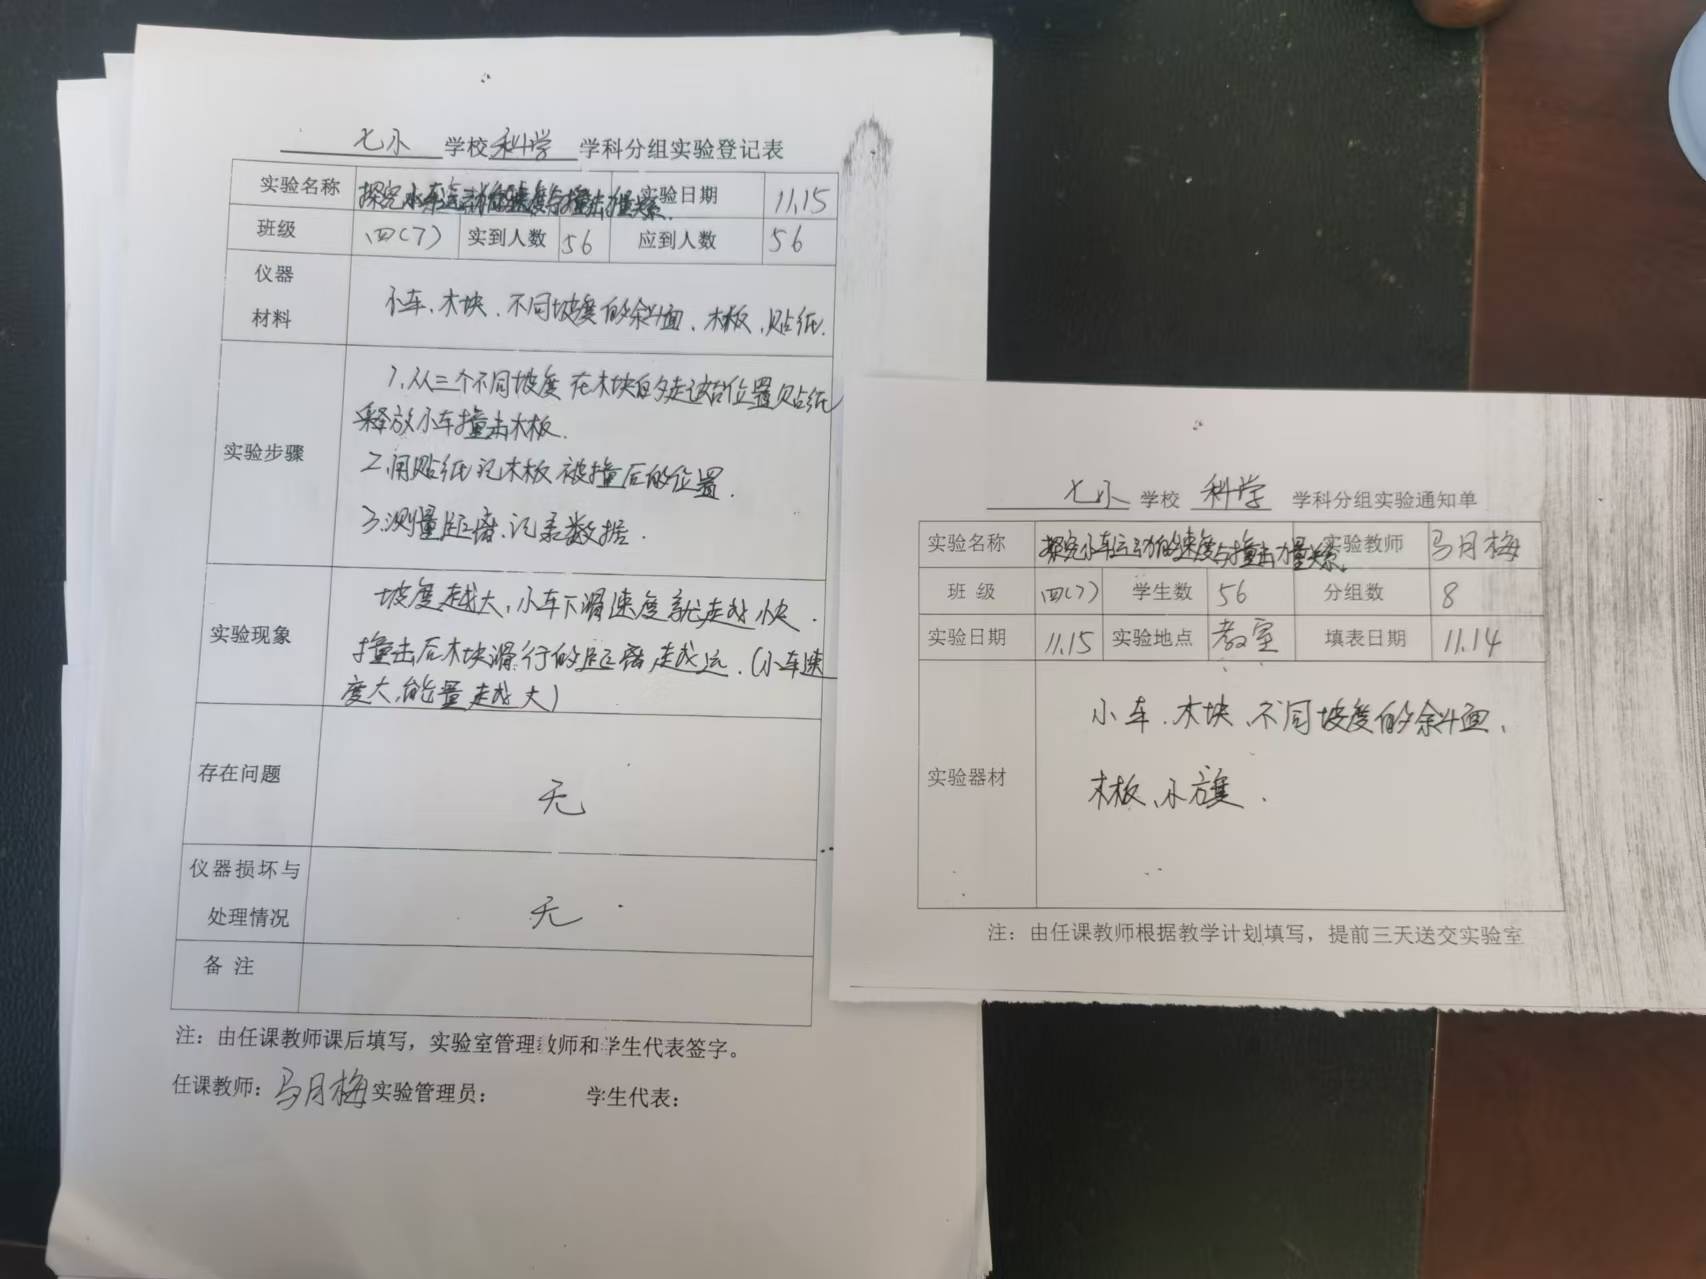 七小 学校 科学 学科分组实验登记表
实验名称 探究小车运动的速度与撞击力量关系. 实验日期 11.15
班级 四(7) 实到人数 56 应到人数 56
仪器
材料
小车、木块、不同坡度的斜面、木板、贴纸.
实验步骤
1、从三个不同坡度 在木块的起始位置贴纸
释放小车撞击木板.
2、用贴纸记木板被撞后的位置.
3、测量距离、记录数据.
实验现象
坡度越大,小车下滑速度就越快.
撞击后木块滑行的距离越远.(小车速
度大,能量越大)
存在问题 无
仪器损坏与
处理情况
无
备 注
注：由任课教师课后填写，实验室管理教师和学生代表签字。
任课教师：马月梅 实验管理员： 学生代表：
七小 学校 科学 学科分组实验通知单
实验名称 探究小车运动的速度与撞击力量关系. 实验教师 马月梅
班 级 四(7) 学生数 56 分组数 8
实验日期 11.15 实验地点 教室 填表日期 11.14
实验器材
小车、木块、不同坡度的斜面、
木板、小旗.
注：由任课教师根据教学计划填写，提前三天送交实验室